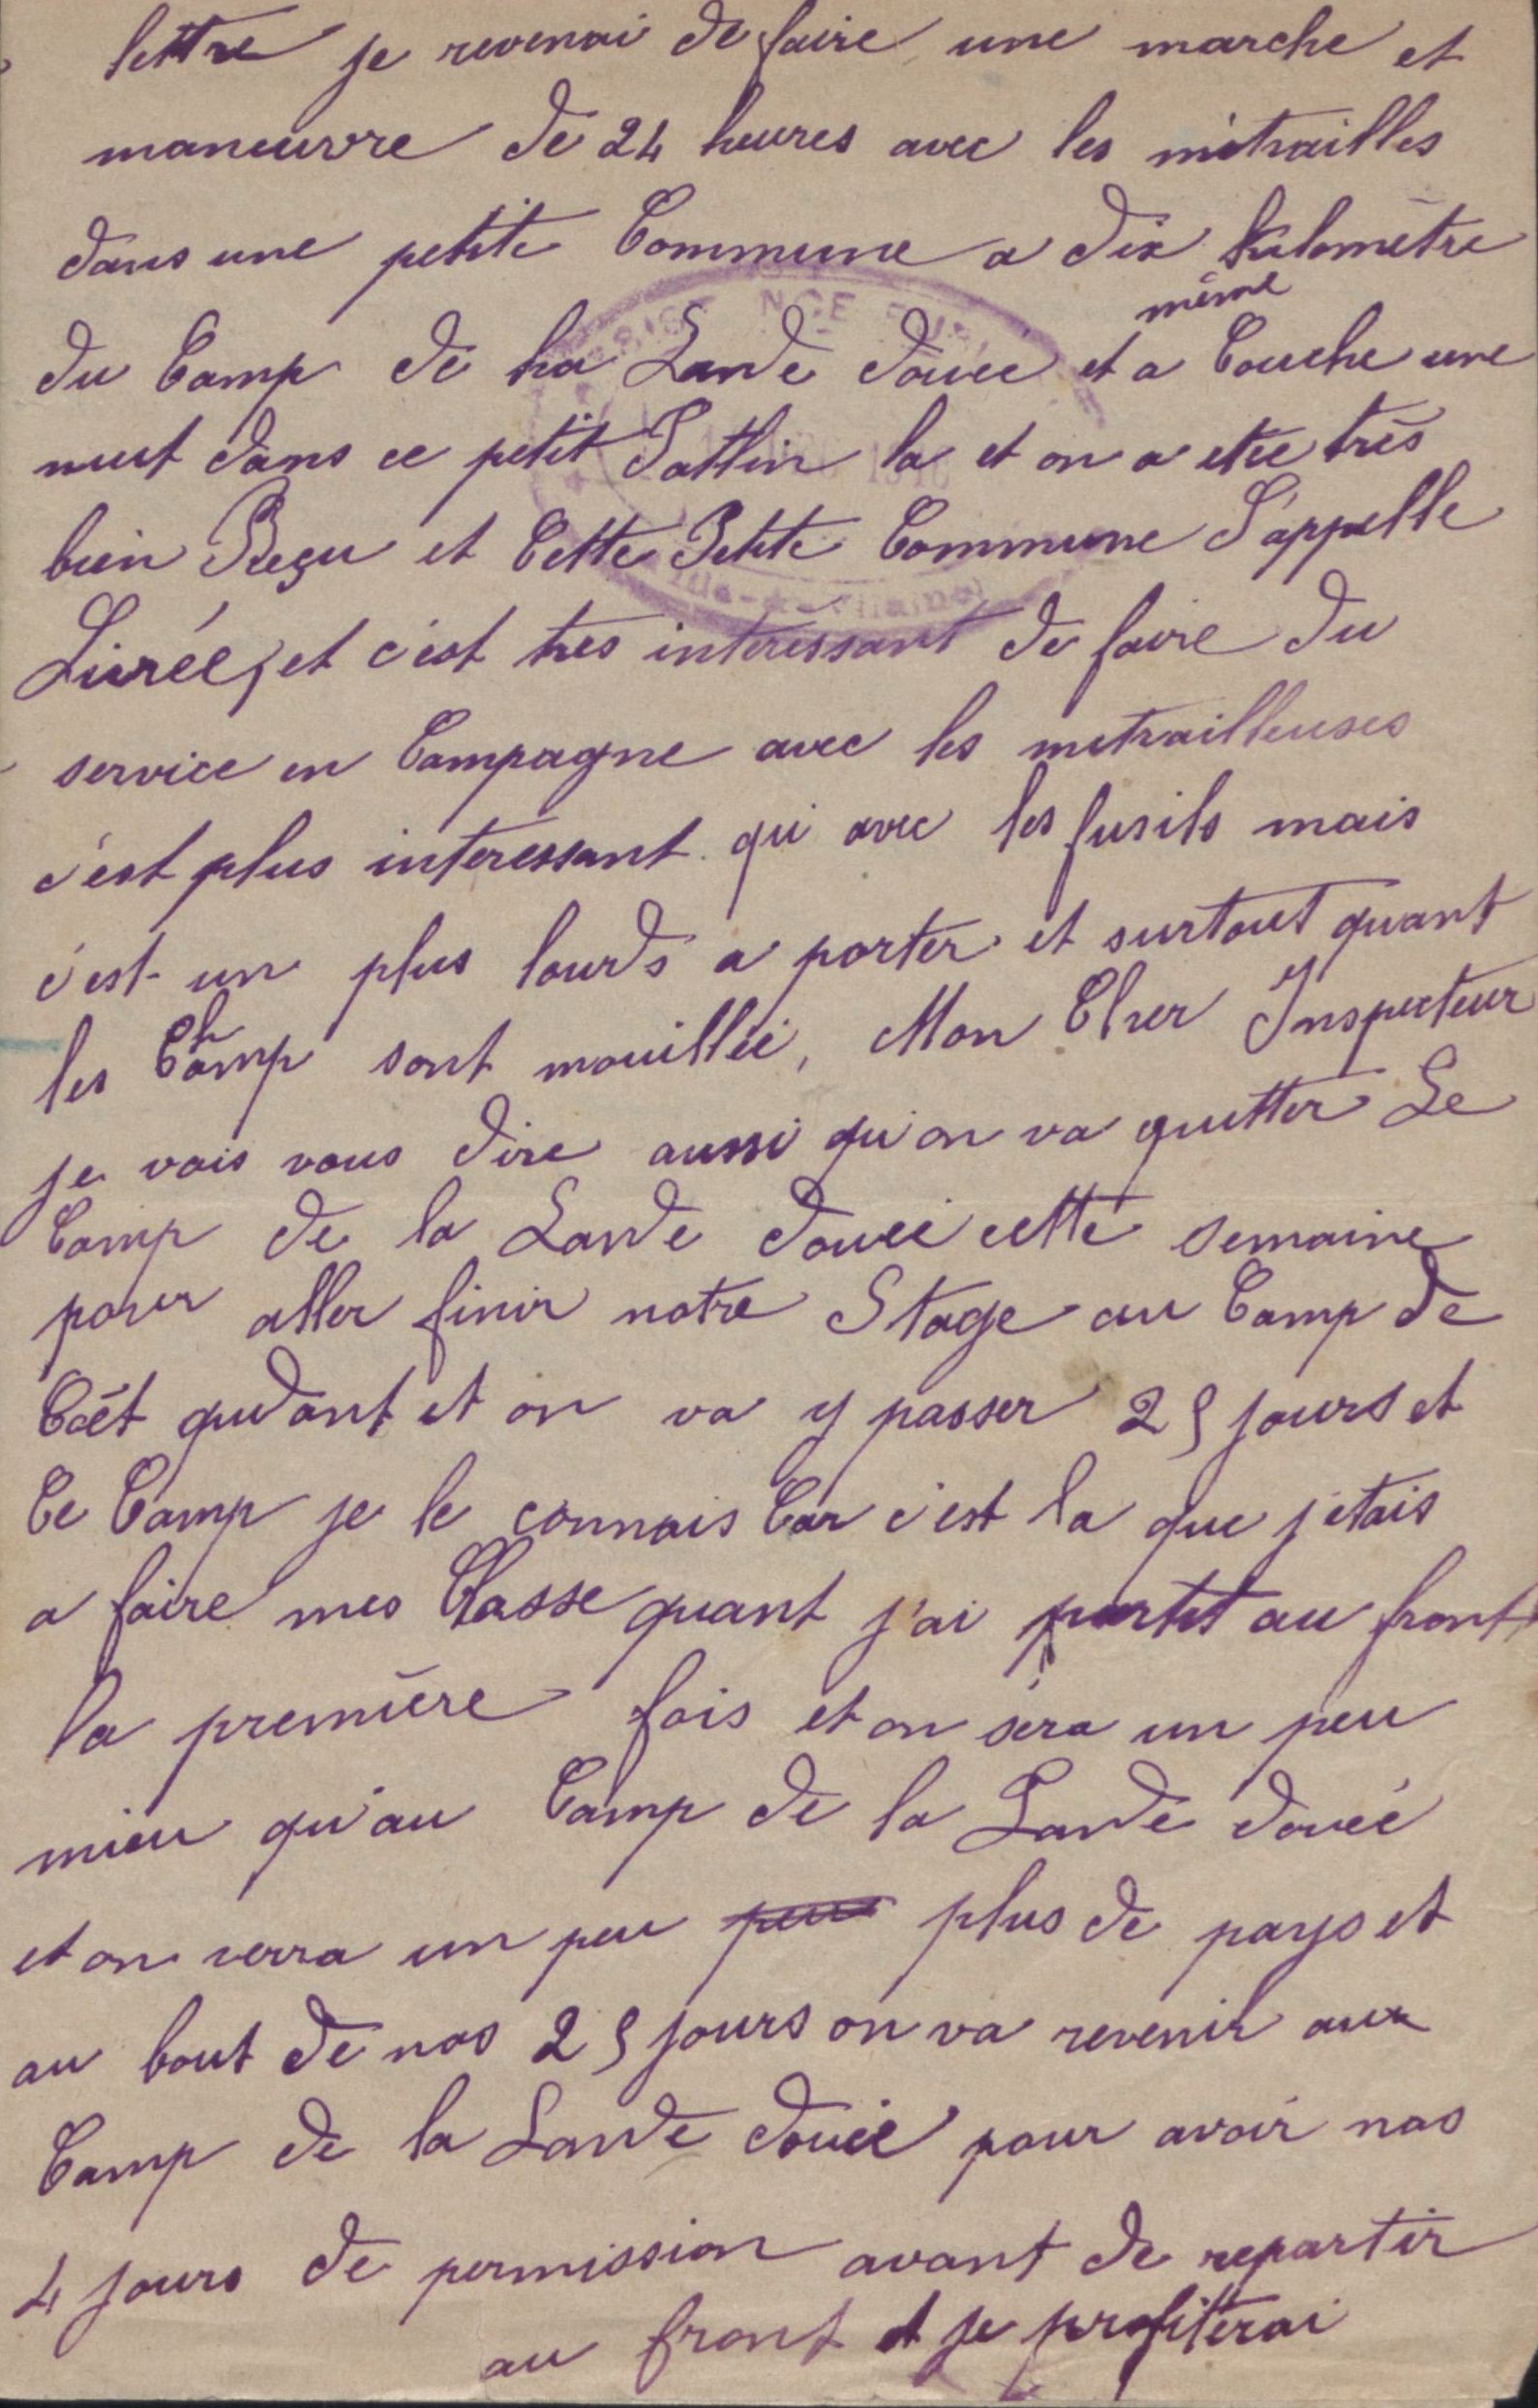 lettre je revenai de faire une marche et
maneuvre de 24 heures avec les mitrailles
dans une petite Commune a dix kilomètre
même
du Camp de la Lande douée et a Couche une
nuit dans ce petit Patlin la et on a etée très
bien Reçu et Cette Petite Commune S'appelle
Livrée, et c'est tres interessant de faire du
service en Campagne avec les mitrailleuses
c'est plus interessant qui avec les fusils mais
c'est un plus lourds a porter et surtout quant
les Champ sont mouillée, Mon Cher Inspecteur
je vais vous dire aussi qu'on va quitter Le
Camp de la Lande douée cette semaine
pour aller finir notre Stage au Camp de
Coët quidant et on va y passer 25 jours et
Ce Camp je le connais Car c'est la que j'etais
a faire mes Classe quant j'ai partit au front
la première fois et on sera un peu
mieu qu'au Camp de la Lande douée
et on verra un peu peu plus de pays et
au bout de nos 25 jours on va revenir aux
Camp de la Lande douée pour avoir nos
4 jours de permission avant de repartir
au front et je profiterai